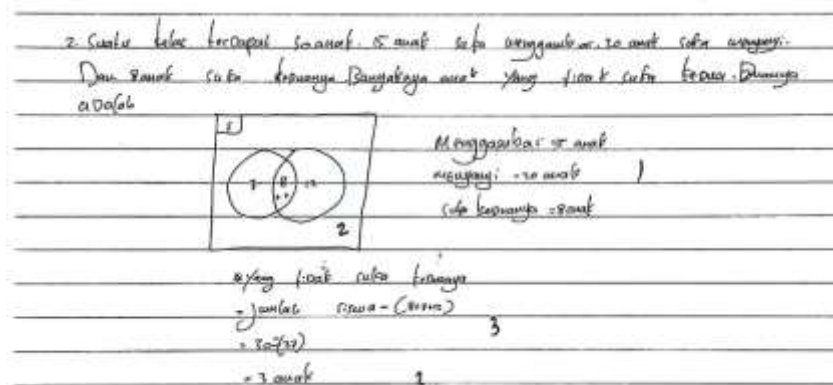 2. Suatu kelas terdapat 30 anak. 15 anak suka menggambar. 20 anak suka menyanyi.
Dan 8 anak suka keduanya Banyaknya anak yang tidak suka kedua-Duanya
adalah
S
7 8 12
2
Menggambar 15 anak
menyanyi = 20 anak 1
suka keduanya = 8 anak
* Yang tidak suka keduanya
= jumlah siswa -
3
= 30-(27)
= 3 anak 2